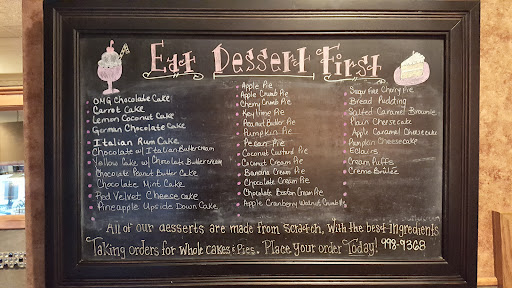 Eat Dessert First
OMG Chocolate Cake
Carrot Cake
Lemon Coconut Cake
German Chocolate Cake
Italian Rum Cake
Chocolate w/ Italian Buttercream
Yellow Cake w/ Chocolate Buttercream
Chocolate Peanut Butter Cake
Chocolate Mint Cake
Red Velvet Cheesecake
Pineapple Upside Down Cake
Apple Pie
Apple Crumb Pie
Cherry Crumb Pie
Key lime Pie
Peanut Butter Pie
Pumpkin Pie
Pecan Pie
Coconut Custard Pie
Coconut Cream Pie
Banana Cream Pie
Chocolate Cream Pie
Chocolate Boston Cream Pie
Apple Cranberry Walnut Crumb
Sugar Free Cherry Pie
Bread Pudding
Salted Caramel Brownie
Plain Cheesecake
Apple Caramel Cheesecake
Pumpkin Cheesecake
Eclairs
Cream Puffs
Creme Brulee
All of our desserts are made from scratch, with the best ingredients
Taking orders for whole cakes & Pies. Place your order Today! 998-9368